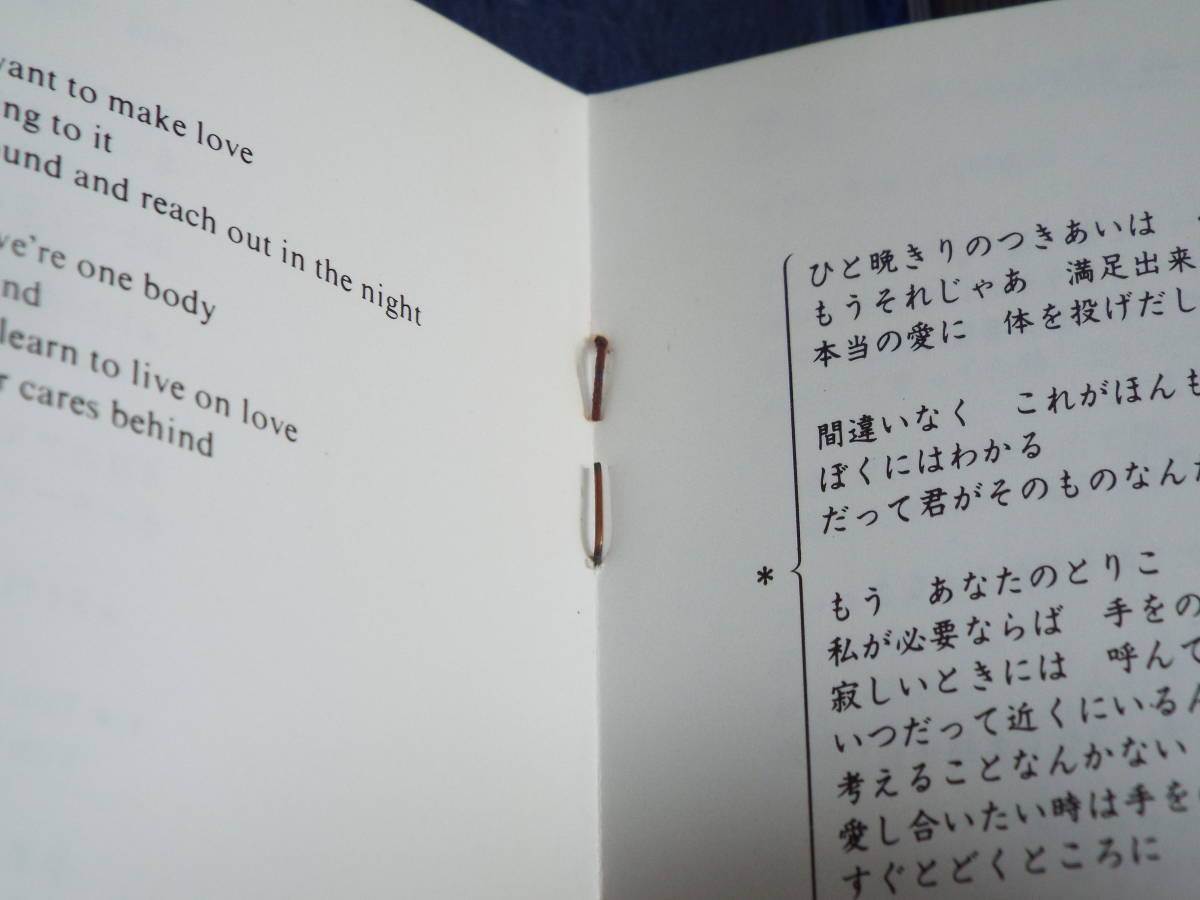 want to make love
to it
and reach out in the night
we're one body
learn to live on love
cares behind
ひと晩きりのつきあいは
もうそれじゃあ　満足出来
本当の愛に　体を投げだし
間違いなく　これがほんも
ぼくにはわかる
だって君がそのものなんだ
*
もう　あなたのとりこ
私が必要ならば　手をの
寂しいときには　呼んで
いつだって近くにいるん
考えることなんかない
愛し合いたい時は手を
すぐとどくところに